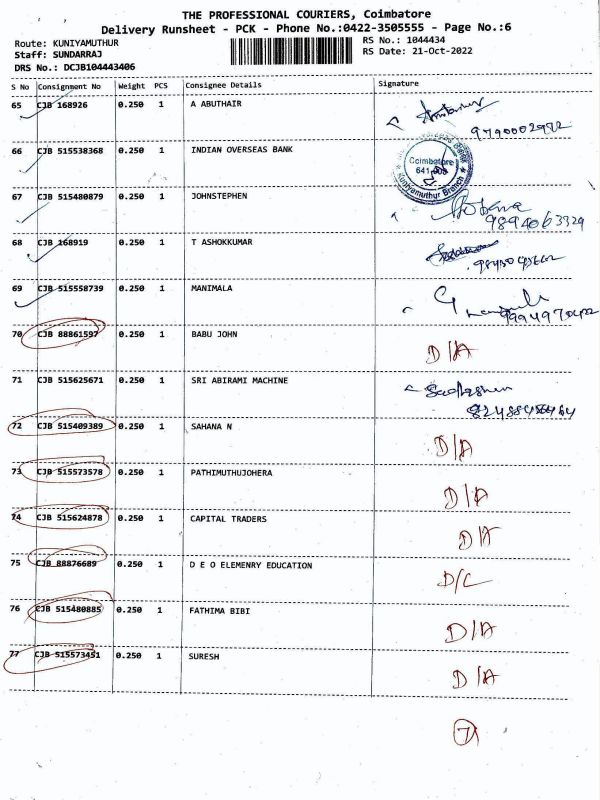 THE PROFESSIONAL COURIERS, Coimbatore
Delivery Runsheet - PCK - Phone No.:0422-3505555 - Page No.:6
Route: KUNIYAMUTHUR
RS No.: 1044434
Staff: SUNDARRAJ
RS Date: 21-Oct-2022
DRS No.: DCJB104443406
S No Consignment No Weight PCS Consignee Details Signature
65 CJB 168926 0.250 1 A ABUTHAIR
9790002972
66 CJB 515538368 0.250 1 INDIAN OVERSEAS BANK
Coimbatore
641 008
Kuniyamuthur Branch
67 CJB 515480879 0.250 1 JOHNSTEPHEN
9894063329
68 CJB 168919 0.250 1 T ASHOKKUMAR
69 CJB 515558739 0.250 1 MANIMALA
9994970422
70 CJB 88861597 0.250 1 BABU JOHN
D/A
71 CJB 515625671 0.250 1 SRI ABIRAMI MACHINE
72 CJB 515409389 0.250 1 SAHANA N
D/A
73 CJB 515573578 0.250 1 PATHIMUTHUJOHERA
D/A
74 CJB 515624878 0.250 1 CAPITAL TRADERS
D/A
75 CJB 88876689 0.250 1 D E O ELEMENRY EDUCATION
D/C
76 CJB 515480885 0.250 1 FATHIMA BIBI
D/A
77 CJB 515573451 0.250 1 SURESH
D/A